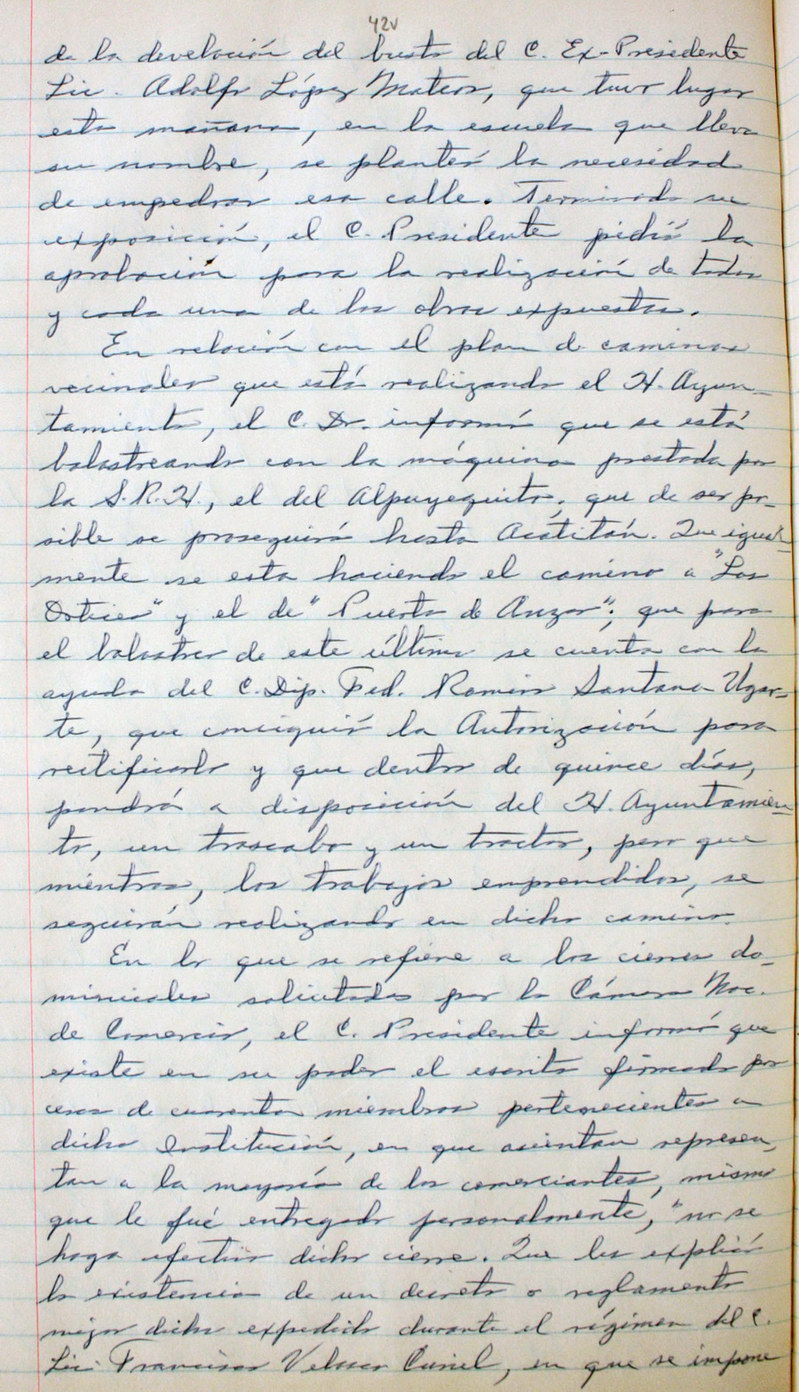 42v
de la develación del busto del C. Ex-Presidente
Lic. Adolfo López Mateos, que tuvo lugar
esta mañana, en la escuela que lleva
su nombre, se planteó la necesidad
de empedrar esa calle. Terminada su
exposición, el C. Presidente pidió la
aprobación para la realización de todas
y cada una de las obras expuestas.
En relación con el plan de caminos
vecinales que está realizando el H. Ayun-
tamiento, el C. Dr. informó que se está
balastreando con la máquina prestada por
la S.R.H., el del Alpuyequito; que de ser po-
sible se proseguirá hasta Acatitán. Que igual-
mente se esta haciendo el camino a "Los
Ortices" y el de "Puerta de Anzar"; que para
el balastreo de este último se cuenta con la
ayuda del C. Dip. Fed. Ramón Santana Ugar-
te, que consiguió la Autorización para
rectificarlo y que dentro de quince días,
pondrá a disposición del H. Ayuntamien-
to, un trascabo y un tractor, pero que
mientras, los trabajos emprendidos, se
seguirán realizando en dicho camino.
En lo que se refiere a los cierres do-
minicales solicitados por la Cámara Nac.
de Comercio, el C. Presidente informó que
existe en su poder el escrito firmado por
cerca de cuarenta miembros pertenecientes a
dicha Institución, en que asientan represen-
tan a la mayoría de los comerciantes, mismo
que le fué entregado personalmente, "no se
haga efectivo dicho cierre. Que les explicó
la existencia de un decreto o reglamento
mejor dicho expedido durante el régimen del C.
Lic. Francisco Velasco Curiel, en que se impone